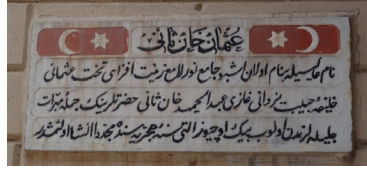 عثمان خان ثانی
نام عالیسیله بنام اولان اشبو جامع نور لامع زینت افزای تخت عثمانی
خلیفهٔ حبیب یزدانی غازی عبد الحمید خان ثانی حضرتلرینك جملهٔ مبرات
جلیله لرندن اولوب بیك اوچیوز التی سنهٔ هجریه سنده مجددا انشا اولنمشدر